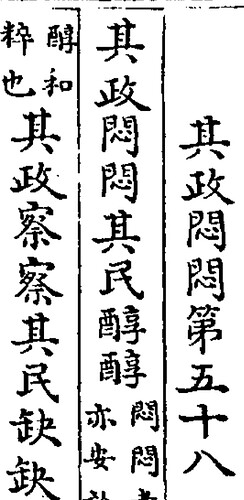 其政悶悶第五十八
其政悶悶其民醇醇
悶悶
亦安
醇和
粹也
其政察察其民缺缺